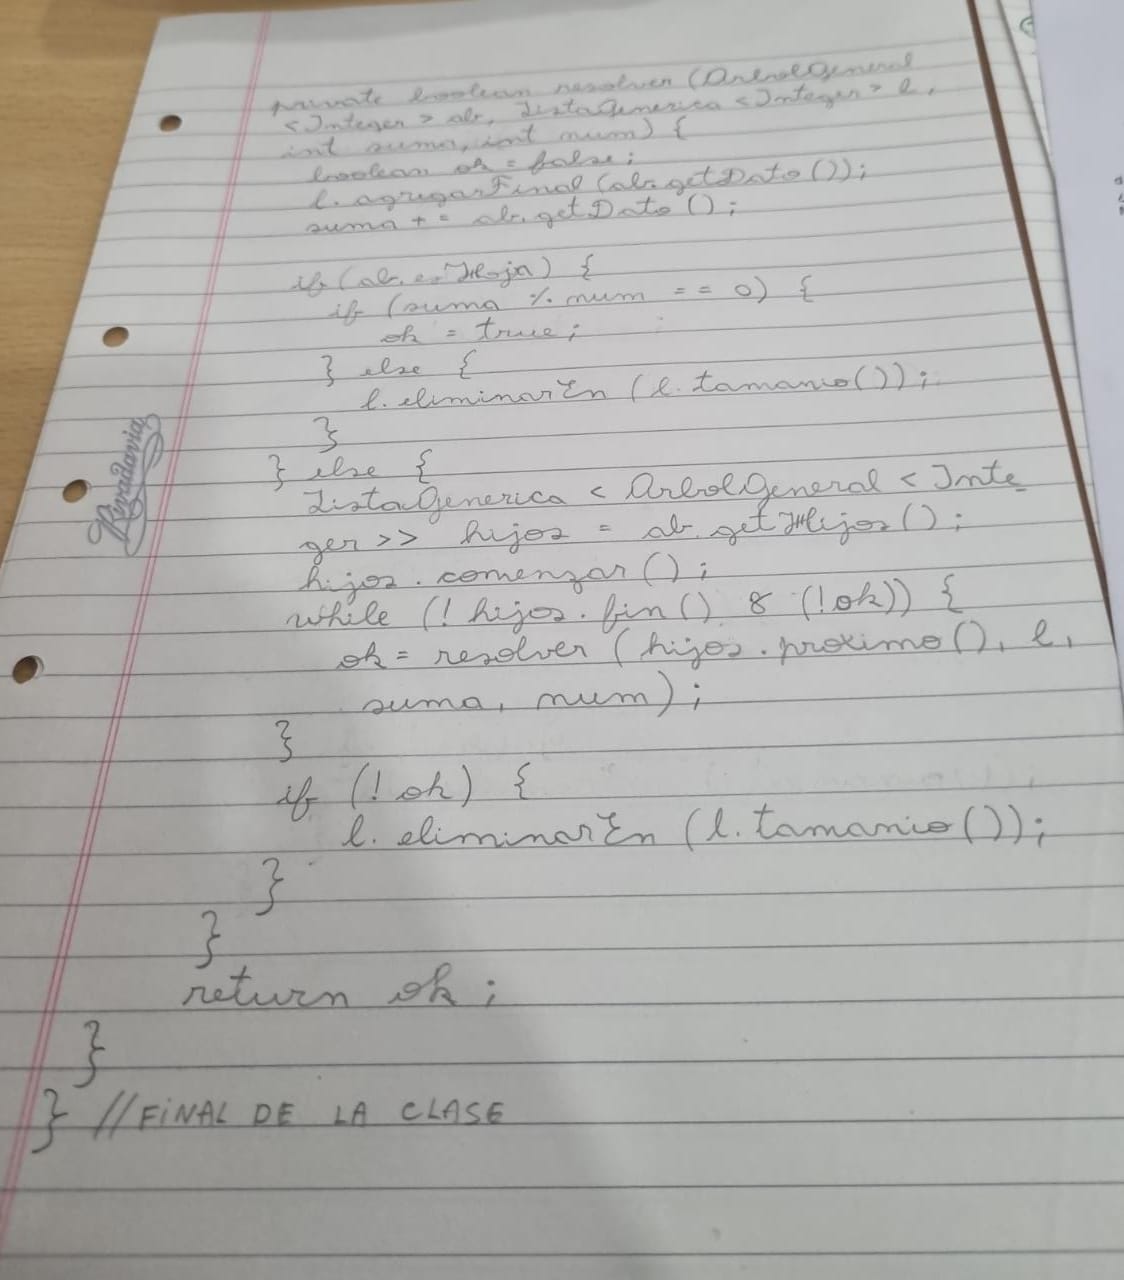 private boolean resolver (ArbolGeneral
<Integer> ab, ListaGenerica <Integer> l,
int suma, int num) {
boolean ok = false;
l. agregarFinal (ab. getDato ());
suma += ab. getDato ();
if (ab. esHoja) {
if (suma % num == 0) {
ok = true;
} else {
l. eliminarEn (l. tamanio());
}
} else {
ListaGenerica < ArbolGeneral < Inte_
ger >> hijos = ab. getHijos ();
hijos . comenzar ();
while (! hijos. fin() & (!ok)) {
ok = resolver (hijos . proximo (), l,
suma, num);
}
if (! ok) {
l. eliminarEn (l. tamanio());
}
}
return ok;
}
} //FINAL DE LA CLASE
Rivadavia